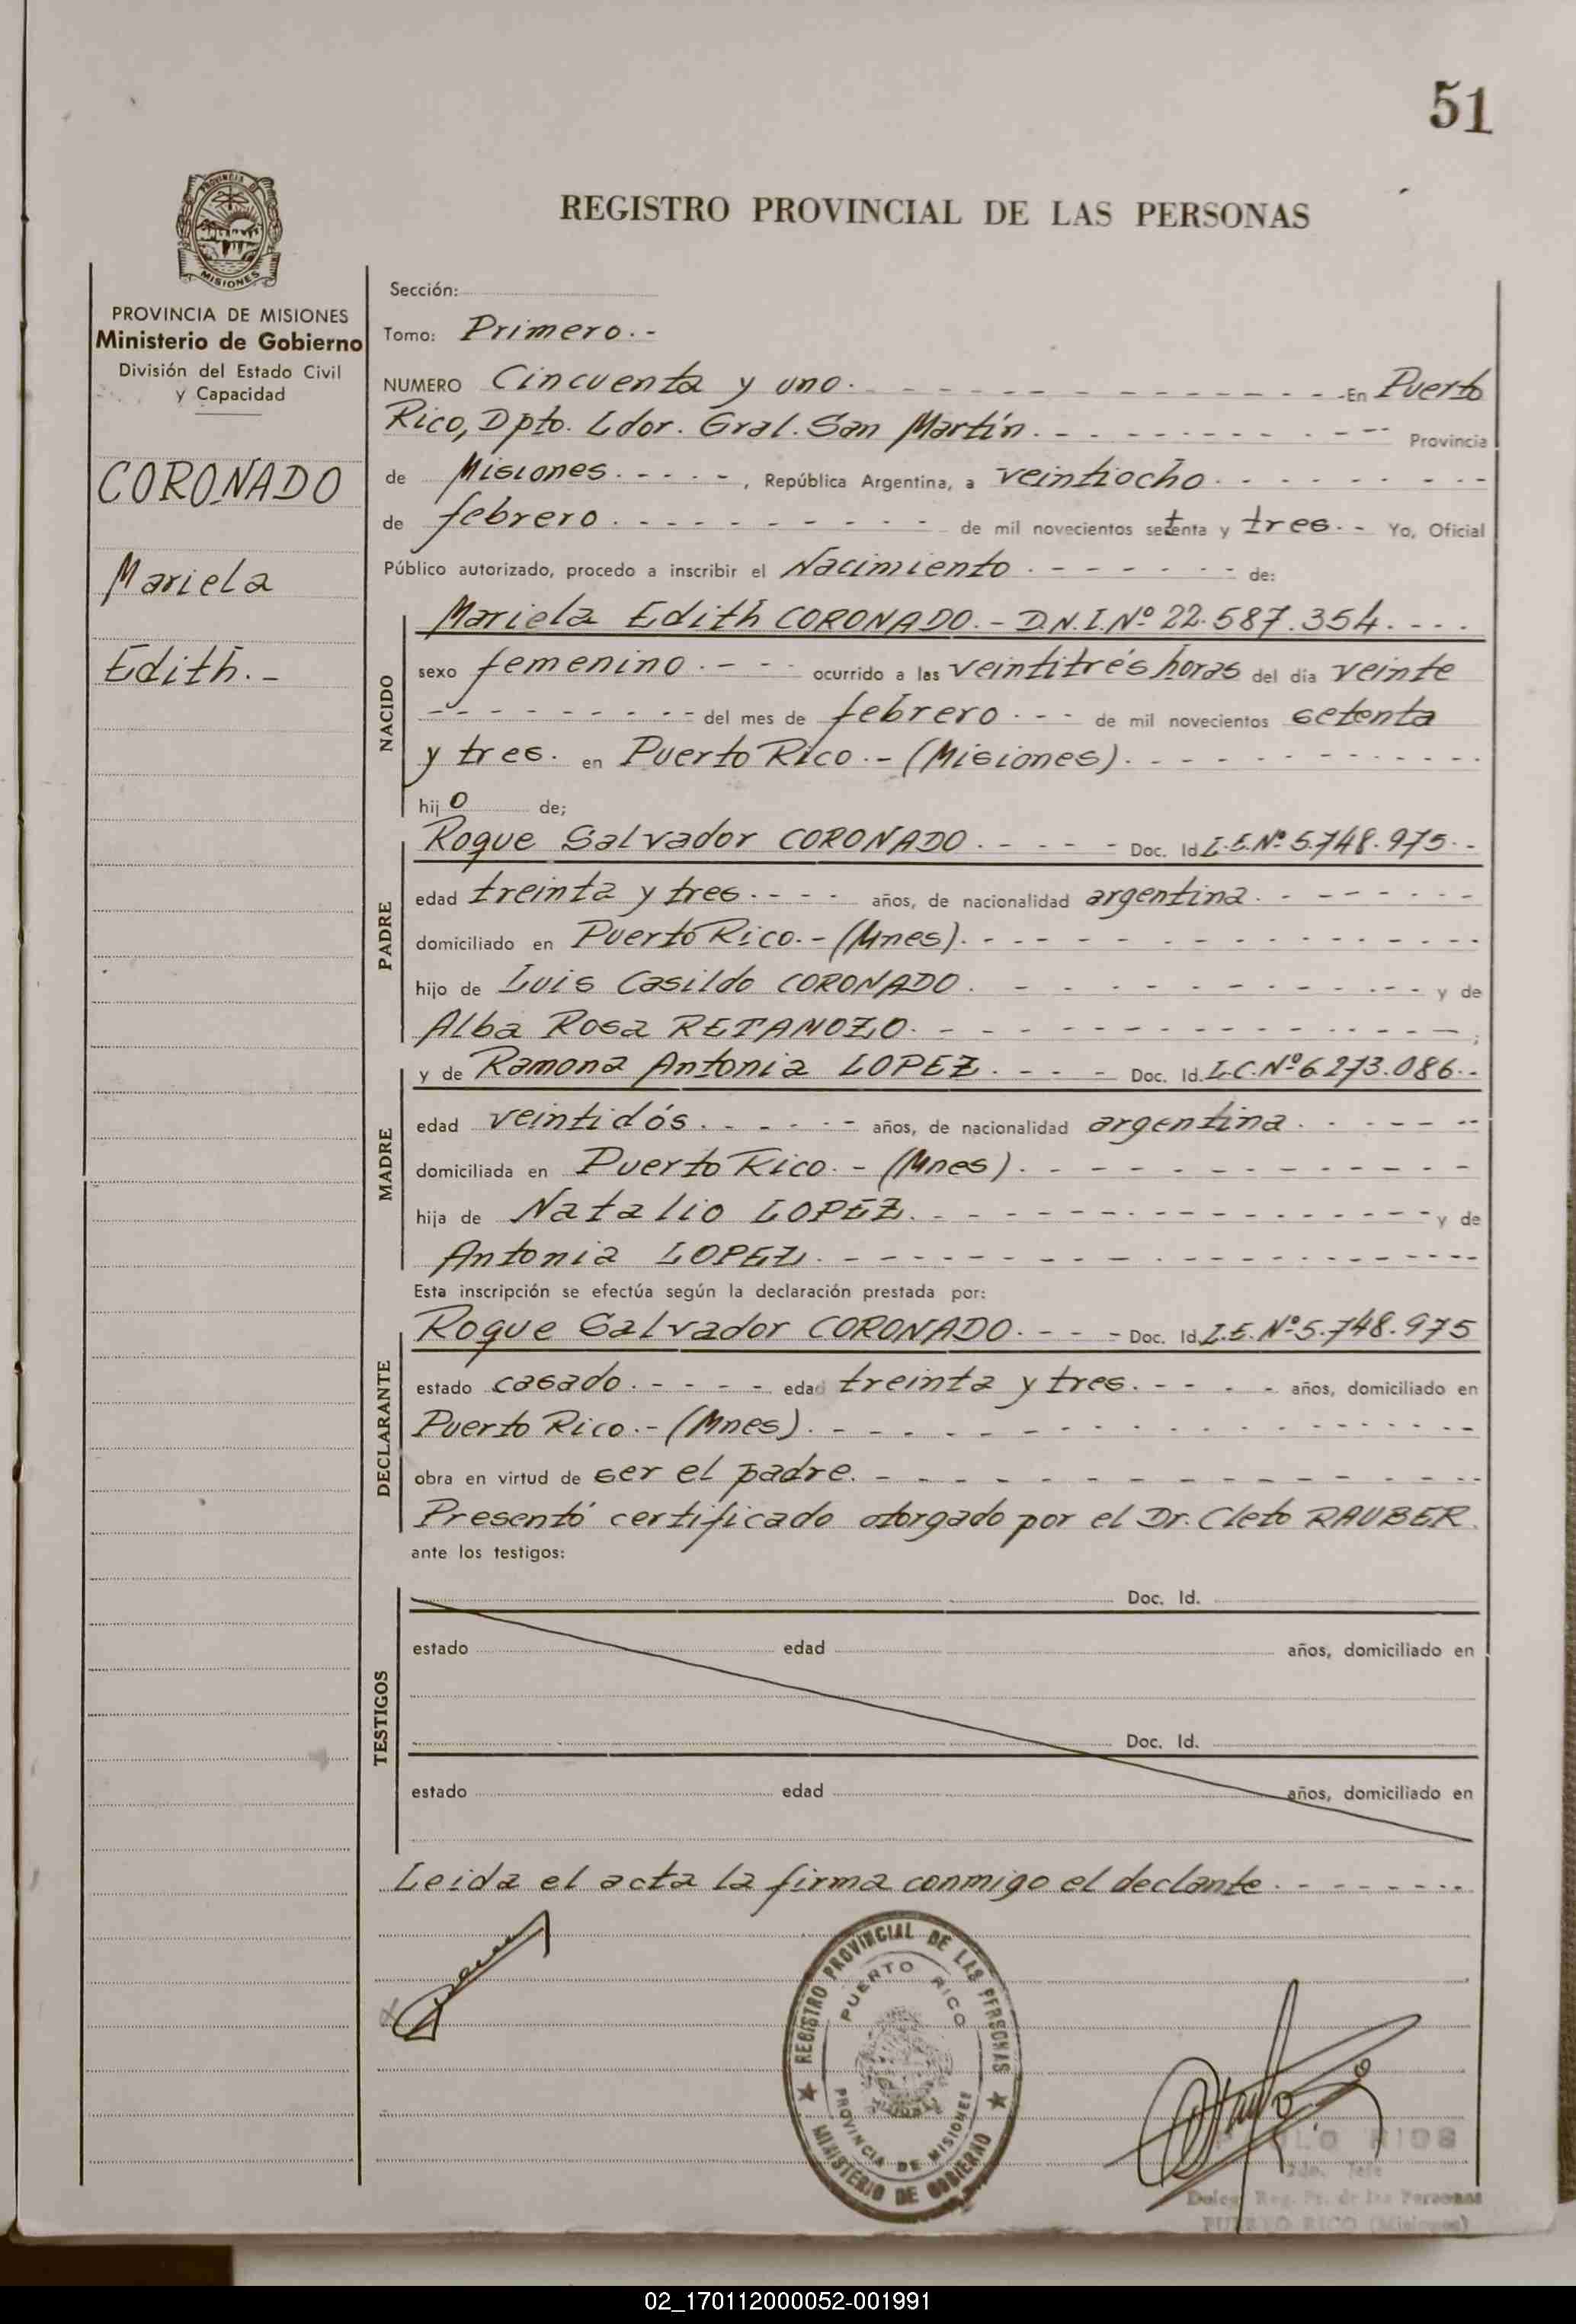 51
PROVINCIA DE
MISIONES
REGISTRO PROVINCIAL DE LAS PERSONAS
PROVINCIA DE MISIONES
Ministerio de Gobierno
División del Estado Civil
y Capacidad
CORONADO
Mariela
Edith.-
Sección:
Tomo: Primero.-
NUMERO Cincuenta y uno. - - - - - - - - - - - - - En Puerto
Rico, Dpto. Ldor. Gral. San Martín. - - - - - - - - - - Provincia
de Misiones. - - - - -, República Argentina, a veintiocho. - - - - - - - -
de febrero. - - - - - - - - - - de mil novecientos setenta y tres. - Yo, Oficial
Público autorizado, procedo a inscribir el Nacimiento. - - - - - - - de:
NACIDO
Mariela Edith CORONADO. - D.N.I. Nº 22.587.354. - - -
sexo femenino. - - - ocurrido a las veintitrés horas del dia veinte
- - - - - - - - - - del mes de febrero. - - - de mil novecientos setenta
y tres. en Puerto Rico. - (Misiones). - - - - - - - - - - - -
hijo de;
PADRE
Roque Salvador CORONADO. - - - - Doc. Id. L.E. Nº 5.748.975. -
edad treinta y tres. - - - - años, de nacionalidad argentina. - - - - - - -
domiciliado en Puerto Rico. - (Mnes). - - - - - - - - - - - - - -
hijo de Luis Casildo CORONADO. - - - - - - - - - - - - y de
Alba Rosa RETAMOZO. - - - - - - - - - - - - - - ;
MADRE
y de Ramona Antonia LOPEZ. - - - - Doc. Id. L.C. Nº 6.273.086. -
edad veintidós. - - - - - - años, de nacionalidad argentina. - - - - - -
domiciliada en Puerto Rico. - (Mnes). - - - - - - - - - - - -
hija de Natalio LOPEZ. - - - - - - - - - - - - - - - - y de
Antonia LOPEZ. - - - - - - - - - - - - - - - - - -
Esta inscripción se efectúa según la declaración prestada por:
DECLARANTE
Roque Salvador CORONADO. - - - - Doc. Id. L.E. Nº 5.748.975
estado casado. - - - - - edad treinta y tres. - - - - - años, domiciliado en
Puerto Rico. - (Mnes). - - - - - - - - - - - - - - - - - -
obra en virtud de ser el padre. - - - - - - - - - - - - - - -
Presentó certificado otorgado por el Dr. Cleto RAUBER.
ante los testigos:
TESTIGOS
Doc. Id.
estado edad años, domiciliado en
Doc. Id.
estado edad años, domiciliado en
Leida el acta la firma conmigo el declante. - - - - - - -
REGISTRO PROVINCIAL DE LAS PERSONAS
PUERTO RICO
PROVINCIA DE MISIONES
MINISTERIO DE GOBIERNO
RIOS
Jefe
Deleg. Reg. Pr. de las Personas
PUERTO RICO (Misiones)
02_170112000052-001991